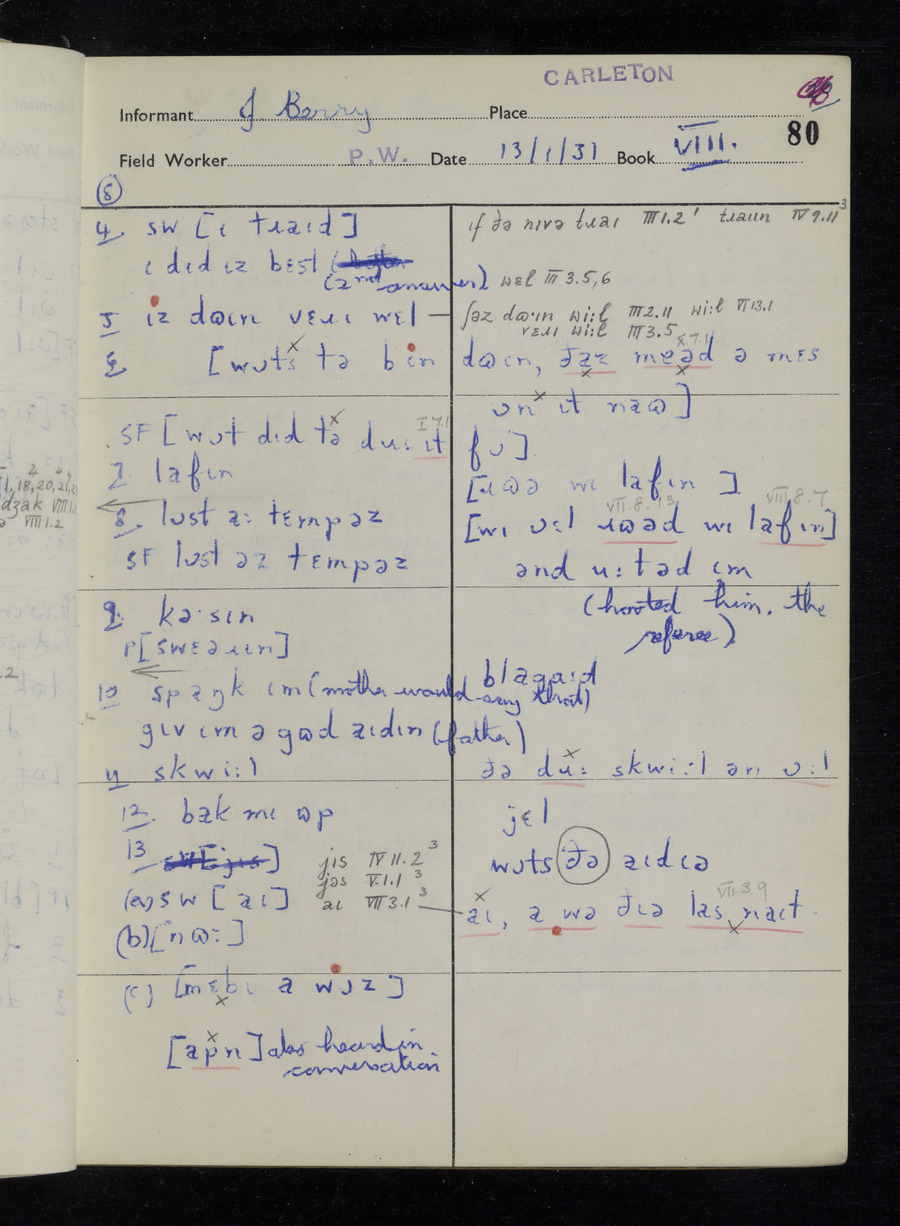 CARLETON
Informant J Berry Place
80
Field Worker P.W. Date 13/1/31 Book VIII.
8
4. SW [ɩ tɹaɪd]
ɩ dɩd ɩz bɛst
(2nd answer)
5 ɩz dɷɩn vɛɹɩ wɛl
6 [wɔts tə bɩn
SF [wɔt dɩd tə du: ɪt
I 7.1
7. lafɩn
8. lɔst a: tɛmpəz
SF lɔst əz tɛmpəz
9. kə·sɩn
P[swɛəɹɩn]
10 spaŋk ɩm (mother would say that)
gɩv ɩm ə gɷd aɪdɩn (father)
11 skwi:l
12. bak mɩ ɷp
13
jɩs IV 11.2 3
jəs V.1.1 3
(a) SW [aɪ]
aɪ VII 3.1 3
(b) [nɷ:]
(c) [mɛbɩ a wɔz]
[apn] also heard in
conversation
if ðə nɪvə tɹaɪ III 1.2 tɹaɪɪn IV 9.11 3
wɛl III 3.5,6
ʃəz dɷɪn wi:l III 2.11 wi:l VI 13.1
vɛɹɪ wi:l III 3.5
X.7.1
dɷɩn, ðaz meəd ə mɛs
ɔn ɪt naɷ]
fɔ]
[ɹɷə wɩ lafɩn]
VII.8.13 VIII.8.7
[wɩ ɔ:l ɹɷəd wɩ lafɩn]
and u:təd ɩm
(hooted him, the
referee)
blagəɪd
ðə du: skwi:l ən ɔ:l
jɛl
wɔts ðə aɪdɪə
VII.3.9
aɩ, a wə ðɩə las naɪt.